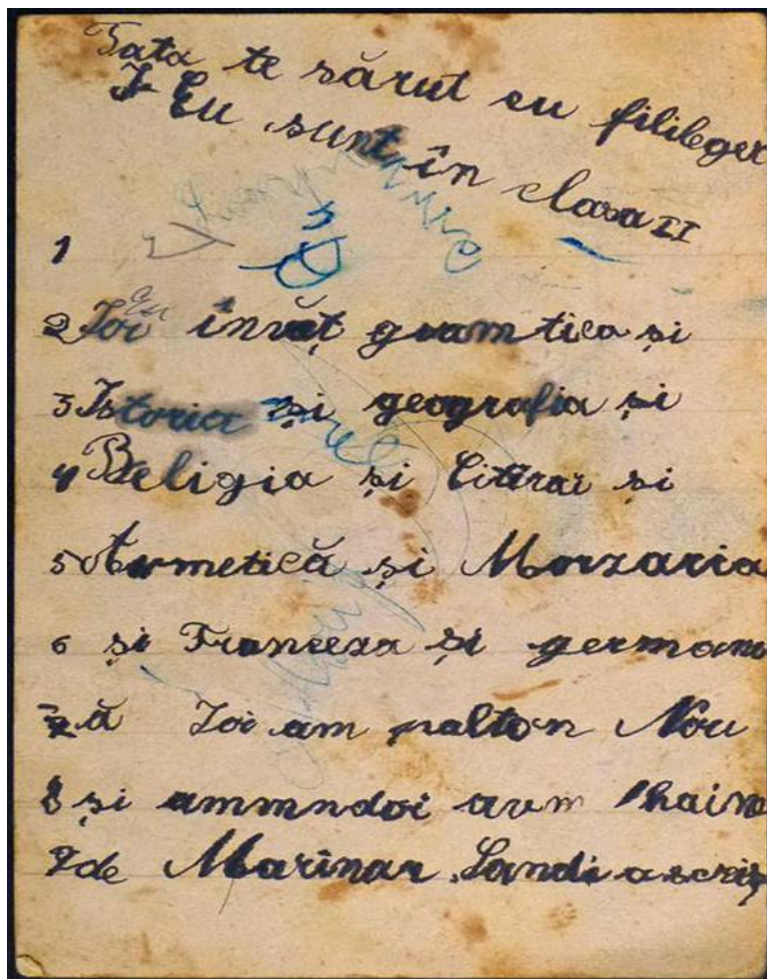 Tata te sărut cu filileger
Eu sunt în clasa II
1
2 Joi Eu învăț gramtica și
3 Istoria și geografia și
4 Religia și Citirai și
5 și
6 și Franceza și german
7 ă Joi am palton Nou
8 și ammndoi avm haine
9 de Marinar Sandi a scris